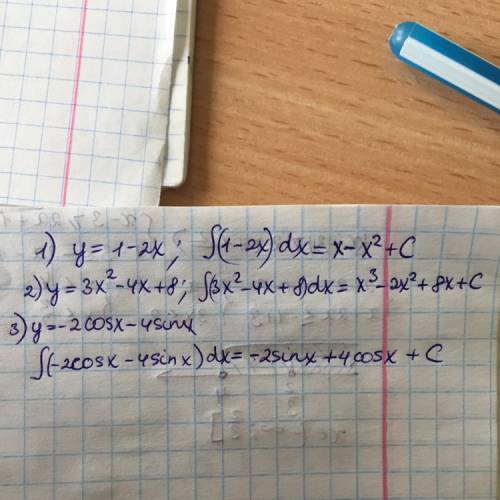 1) y = 1-2x; ∫(1-2x)dx = x - x² + C
2) y = 3x² - 4x + 8; ∫(3x² - 4x + 8)dx = x³ - 2x² + 8x + C
3) y = -2cosx - 4sinx
∫(-2cosx - 4sinx)dx = -2sinx + 4cosx + C